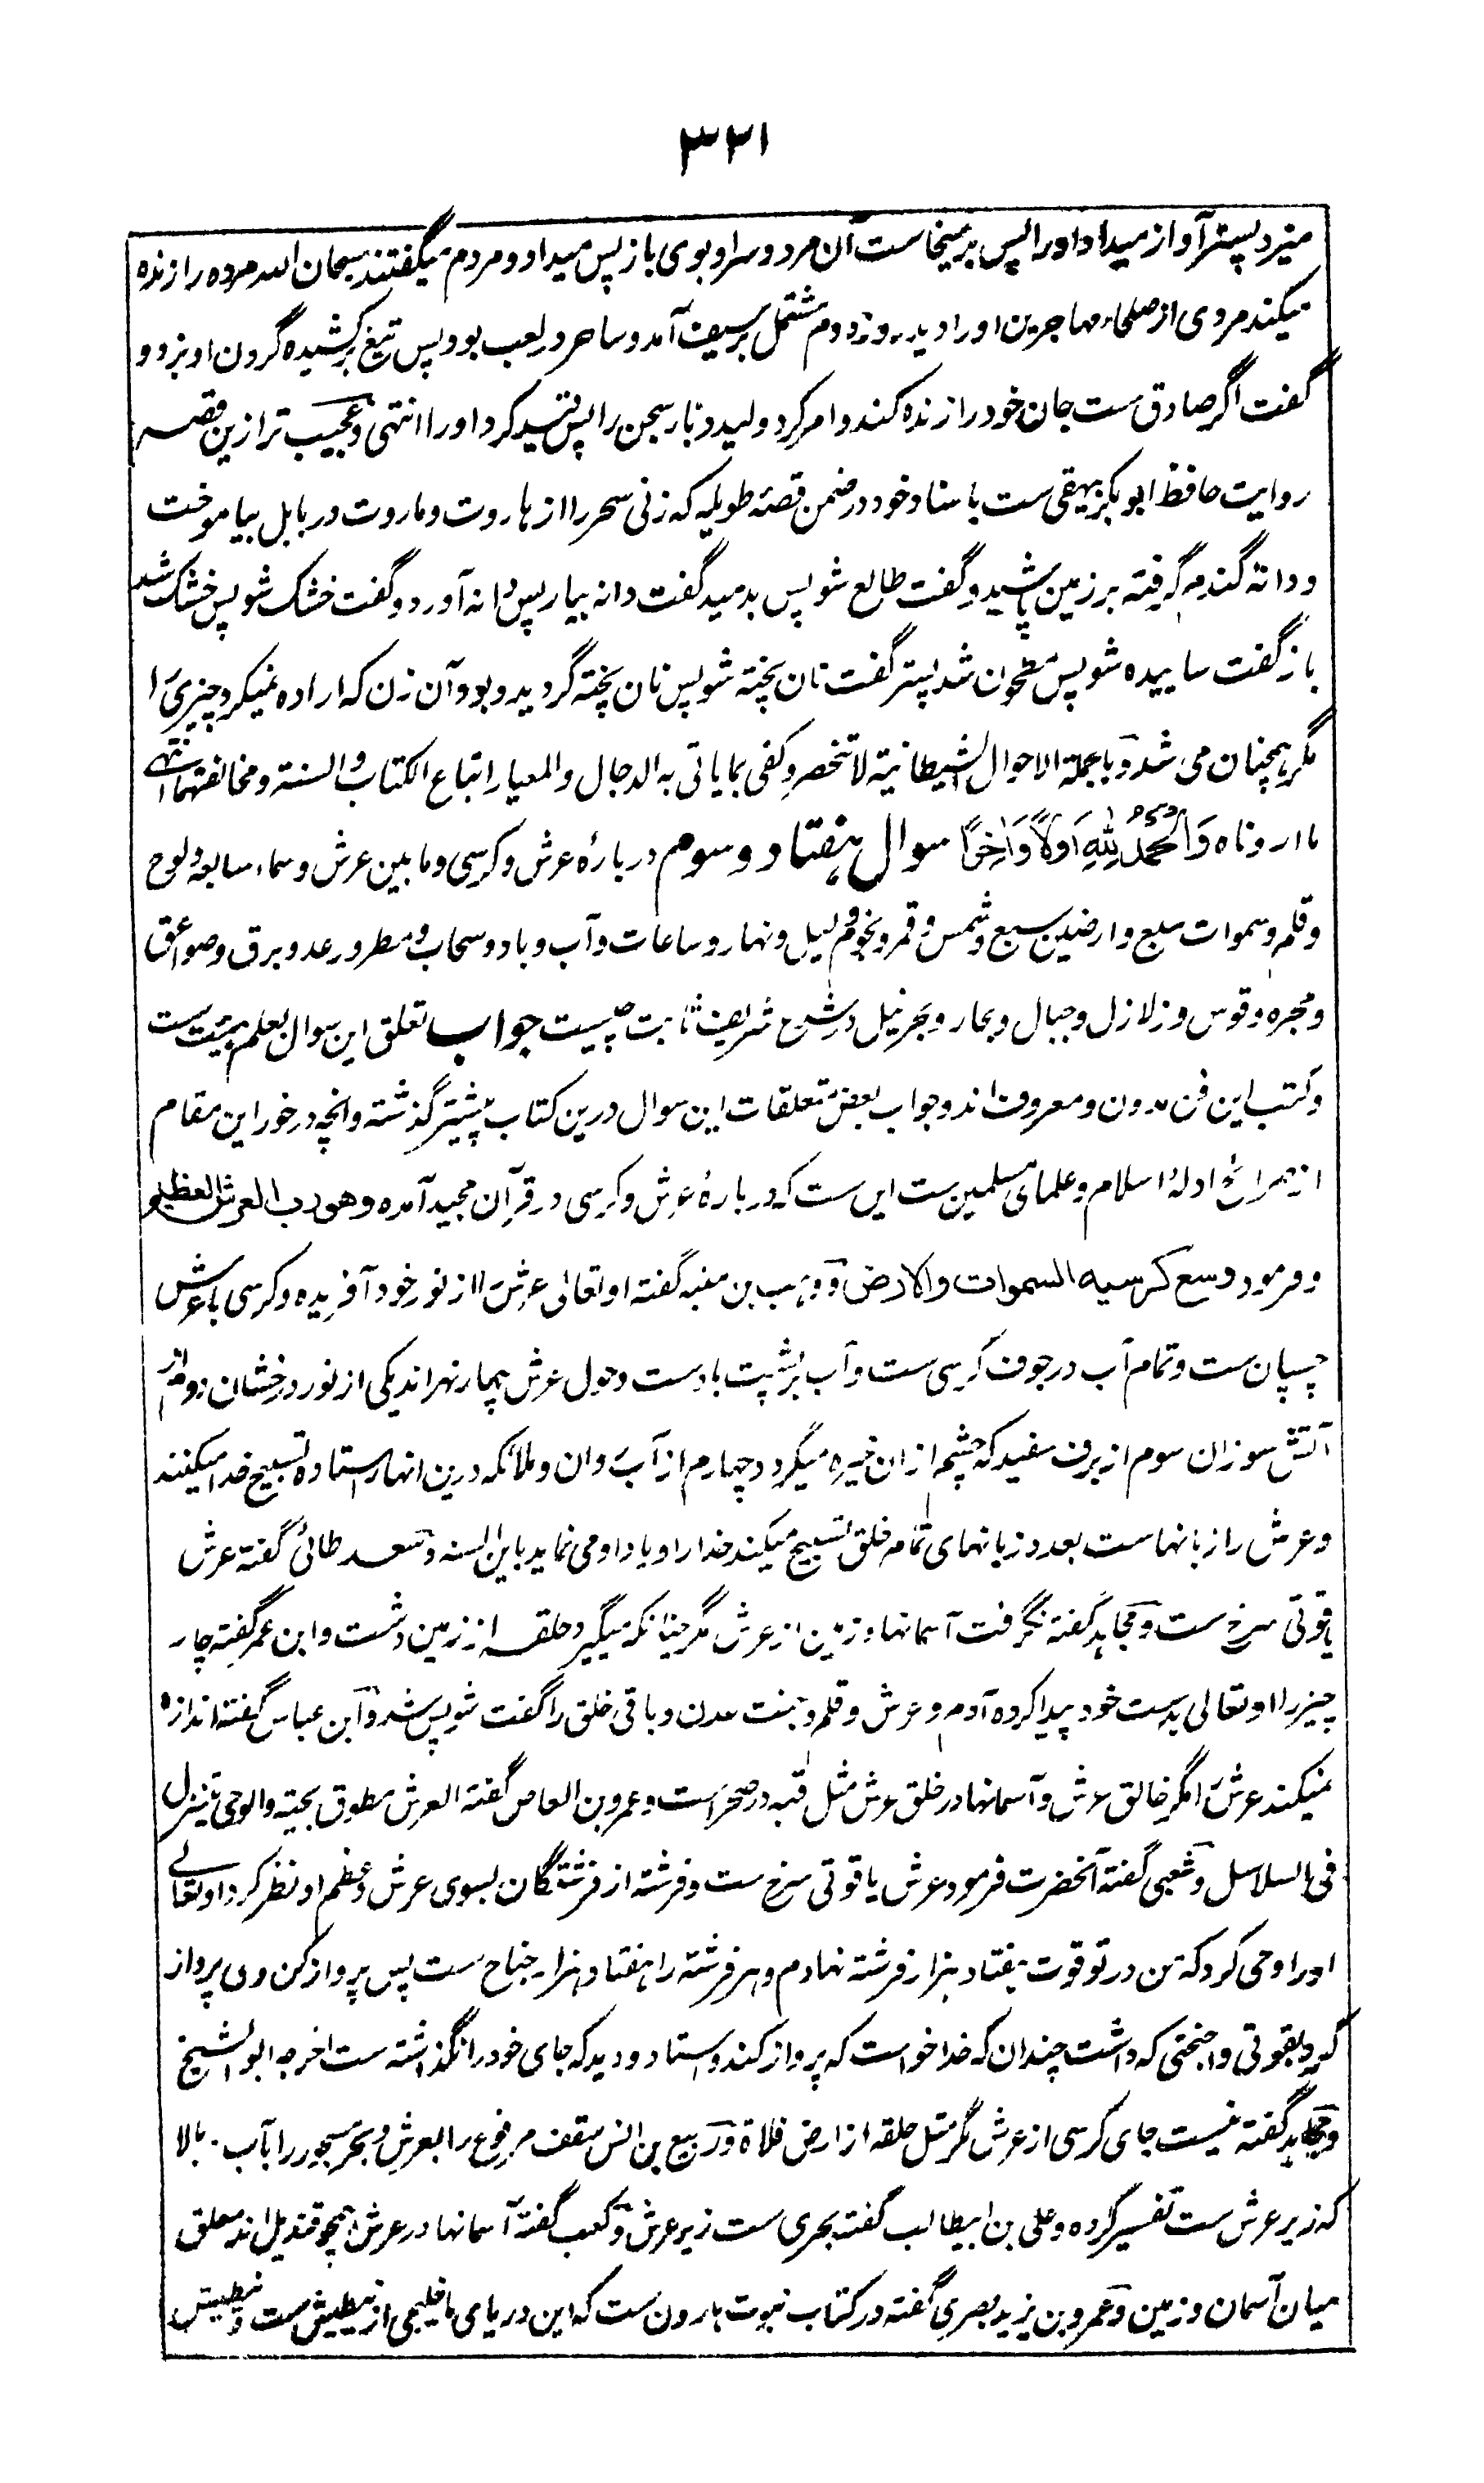 ۳۲۱
میزد پستر آواز میداد او را پس برمیخاست آن مرد و سر او بوی باز پس میداد و مردم میگفتند سبحان الله مرده را زنده
میکند مردی از صلحاء مهاجرین او را دید روز دوم مشتمل بر سیف آمد و ساحر در لعب بود پس تیغ برکشیده گردن او بزد و
گفت اگر صادق ست جان خود را زنده کند و امر کرد ولید دنبار سجن را پس قید کرد او را انتهی و عجیب تر ازین قصه
روایت حافظ ابوبکر بیهقی ست باسناد خود در ضمن قصهٔ طویله که زنی سحر را از هاروت و ماروت در بابل بیاموخت
و دانهٔ گندم گرفته بر زمین پاشید و گفت طالع شو پس بدمید گفت دانه بیار پس دانه آورد و گفت خشک شو پس خشک شد
باز گفت ساییده شو پس مطحون شد پستر گفت نان پخته شو پس نان پخته گردید و بود آن زن که اراده نمیکرد چیزی را
مگر همچنان می شد و با جملة الاحوال الشیطانیة لا تنحصر و کفی بما یاتی به الدجال و المعیار اتباع الکتاب و السنة و مخالفتهما انتهی
ما اردناه وَالْحَمْدُ لِلّٰهِ اَوَّلًا وَّاٰخِرًا سوال هفتاد و سوم دربارهٔ عرش و کرسی و مابین عرش و سماء سابعه و لوح
و قلم و سموات سبع و ارضین سبع و شمس و قمر و نجوم و لیل و نهار و ساعات و آب و باد و سحاب و مطر و رعد و برق و صواعق
و مجره و قوس و زلازل و جبال و بحار و بحر نیل در شرع شریف ثابت چیست جواب تعلق این سوال بعلم هیئت ست
و کتب این فن مدون و معروف اند و جواب بعض متعلقات این سوال درین کتاب پیشتر گذشته و انچه در خور این مقام
از صرائح ادلهٔ اسلام و علمای مسلمین ست این ست که دربارهٔ عرش و کرسی در قرآن مجید آمده وهو رب العرش العظیم
و فرمود وسع کرسیه السموات والارض و وهب بن منبه گفته او تعالی عرش را از نور خود آفریده و کرسی با عرش
چسپان ست و تمام آب در جوف کرسی ست و آب بر پشت باد ست و حول عرش چهار نهر اند یکی از نور درخشان دوم از
آتش سوزان سوم از برف سفید که چشم ازان خیره میگردد چهارم از آب روان و ملائکه درین انهار استاده تسبیح خدا میکنند
و عرش را زبانها ست بعدد زبانهای تمام خلق تسبیح میکند خدا را و یاد او می نماید باین السنه و سعد طائی گفته عرش
یاقوتی سرخ ست و مجاهد گفته نگرفت آسمانها و زمین از عرش مگر چنانکه میگیرد حلقه از زمین دشت و ابن عمر گفته چار
چیز را او تعالی بدست خود پیدا کرده آدم و عرش و قلم و جنت عدن و باقی خلق را گفت شو پس شد و ابن عباس گفته اندازه
نمیکند عرش را مگر خالق عرش و آسمانها در خلق عرش مثل قبه در صحرا ست و عمرو بن العاص گفته العرش مطوق بحیة و الوحی تنزل
فی السلاسل و شعبی گفته آنحضرت فرمود عرش یاقوتی سرخ ست و فرشته از فرشتگان بسوی عرش و عظم او نظر کرد او تعالی
او را وحی کرد که من در تو قوت هفتاد هزار فرشته نهادم و هر فرشته را هفتاد هزار جناح ست پس پرواز کن وی پرواز
کرد بقوتی و اجنحتی که داشت چندان که خدا خواست که پرواز کند و استاد و دید که جای خود را نگذاشته ست اخرجه ابو الشیخ
و مجاهد گفته نیست جای کرسی از عرش مگر مثل حلقه از ارض فلاة و ربیع بن انس سقف مرفوع را بعرش و بحر مسجور را بآب بالا
که زیر عرش ست تفسیر کرده و علی بن ابیطالب گفته بحری ست زیر عرش و کعب گفته آسمانها در عرش همچو قندیل اند معلق
میان آسمان و زمین و عمرو بن یزید بصری گفته در کتاب نبوت هارون ست که این دریای ما خلیجی از نیطیش ست و نیطیش